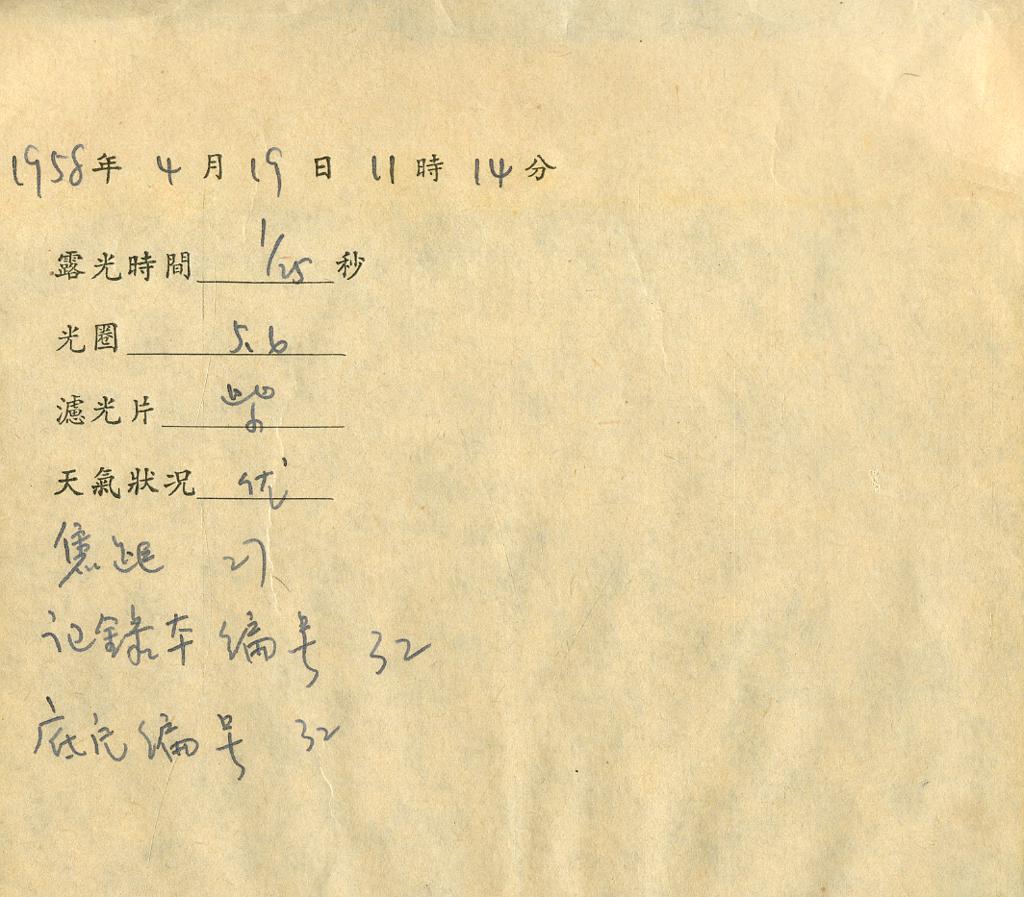 1958年 4月 19日 11時 14分
露光時間 1/25 秒
光圈 5.6
濾光片
天氣狀况 优
焦距 27
记録本编号 32
底片编号 32